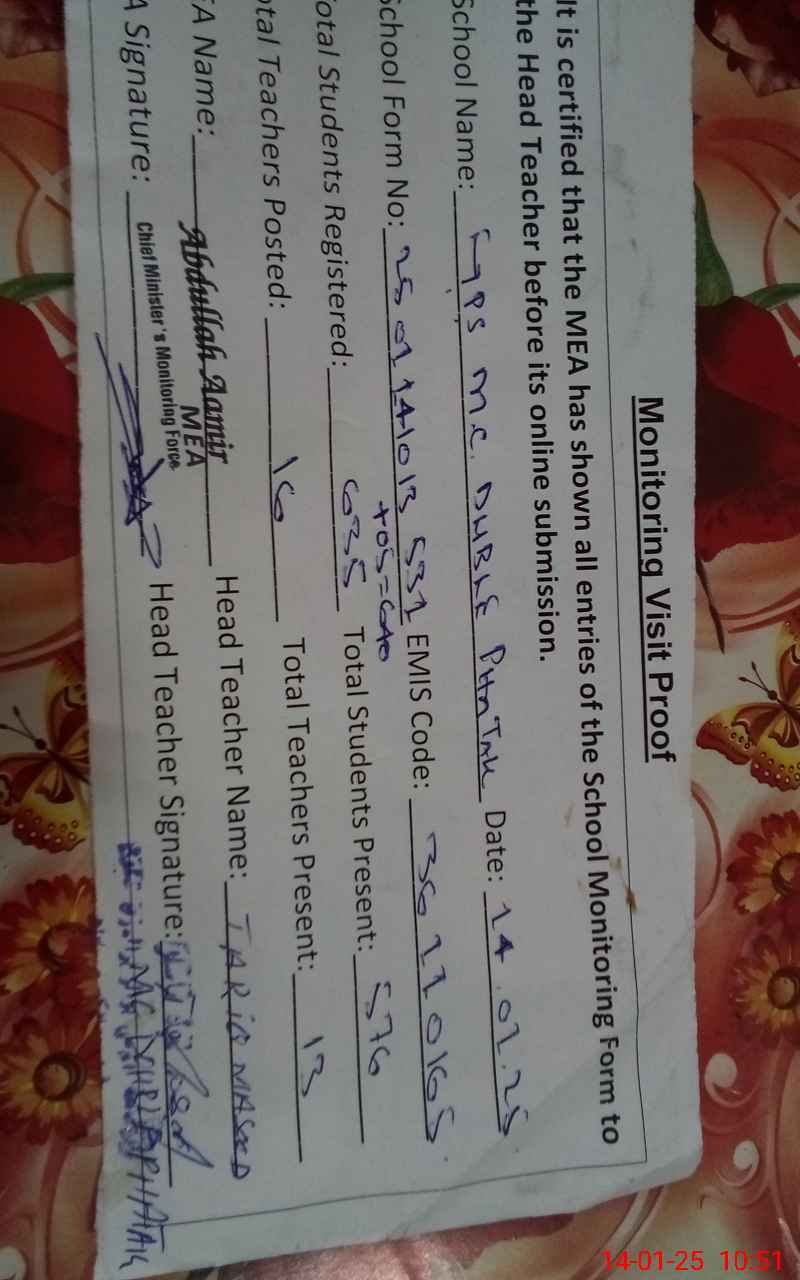 Monitoring Visit Proof
It is certified that the MEA has shown all entries of the School Monitoring Form to
the Head Teacher before its online submission.
School Name: GPS MC. DHRLE PHATAK Date: 14.01.25
School Form No: 25 01 14 1013 531 EMIS Code: 36110165
+05=640
Total Students Registered: 635 Total Students Present: 576
otal Teachers Posted: 16 Total Teachers Present: 13
EA Name: Abdullah Aamir Head Teacher Name: TARIQ MASOOD
MEA
Chief Minister's Monitoring Force
A Signature: Head Teacher Signature:
MC PHATAK
14-01-25 10:51